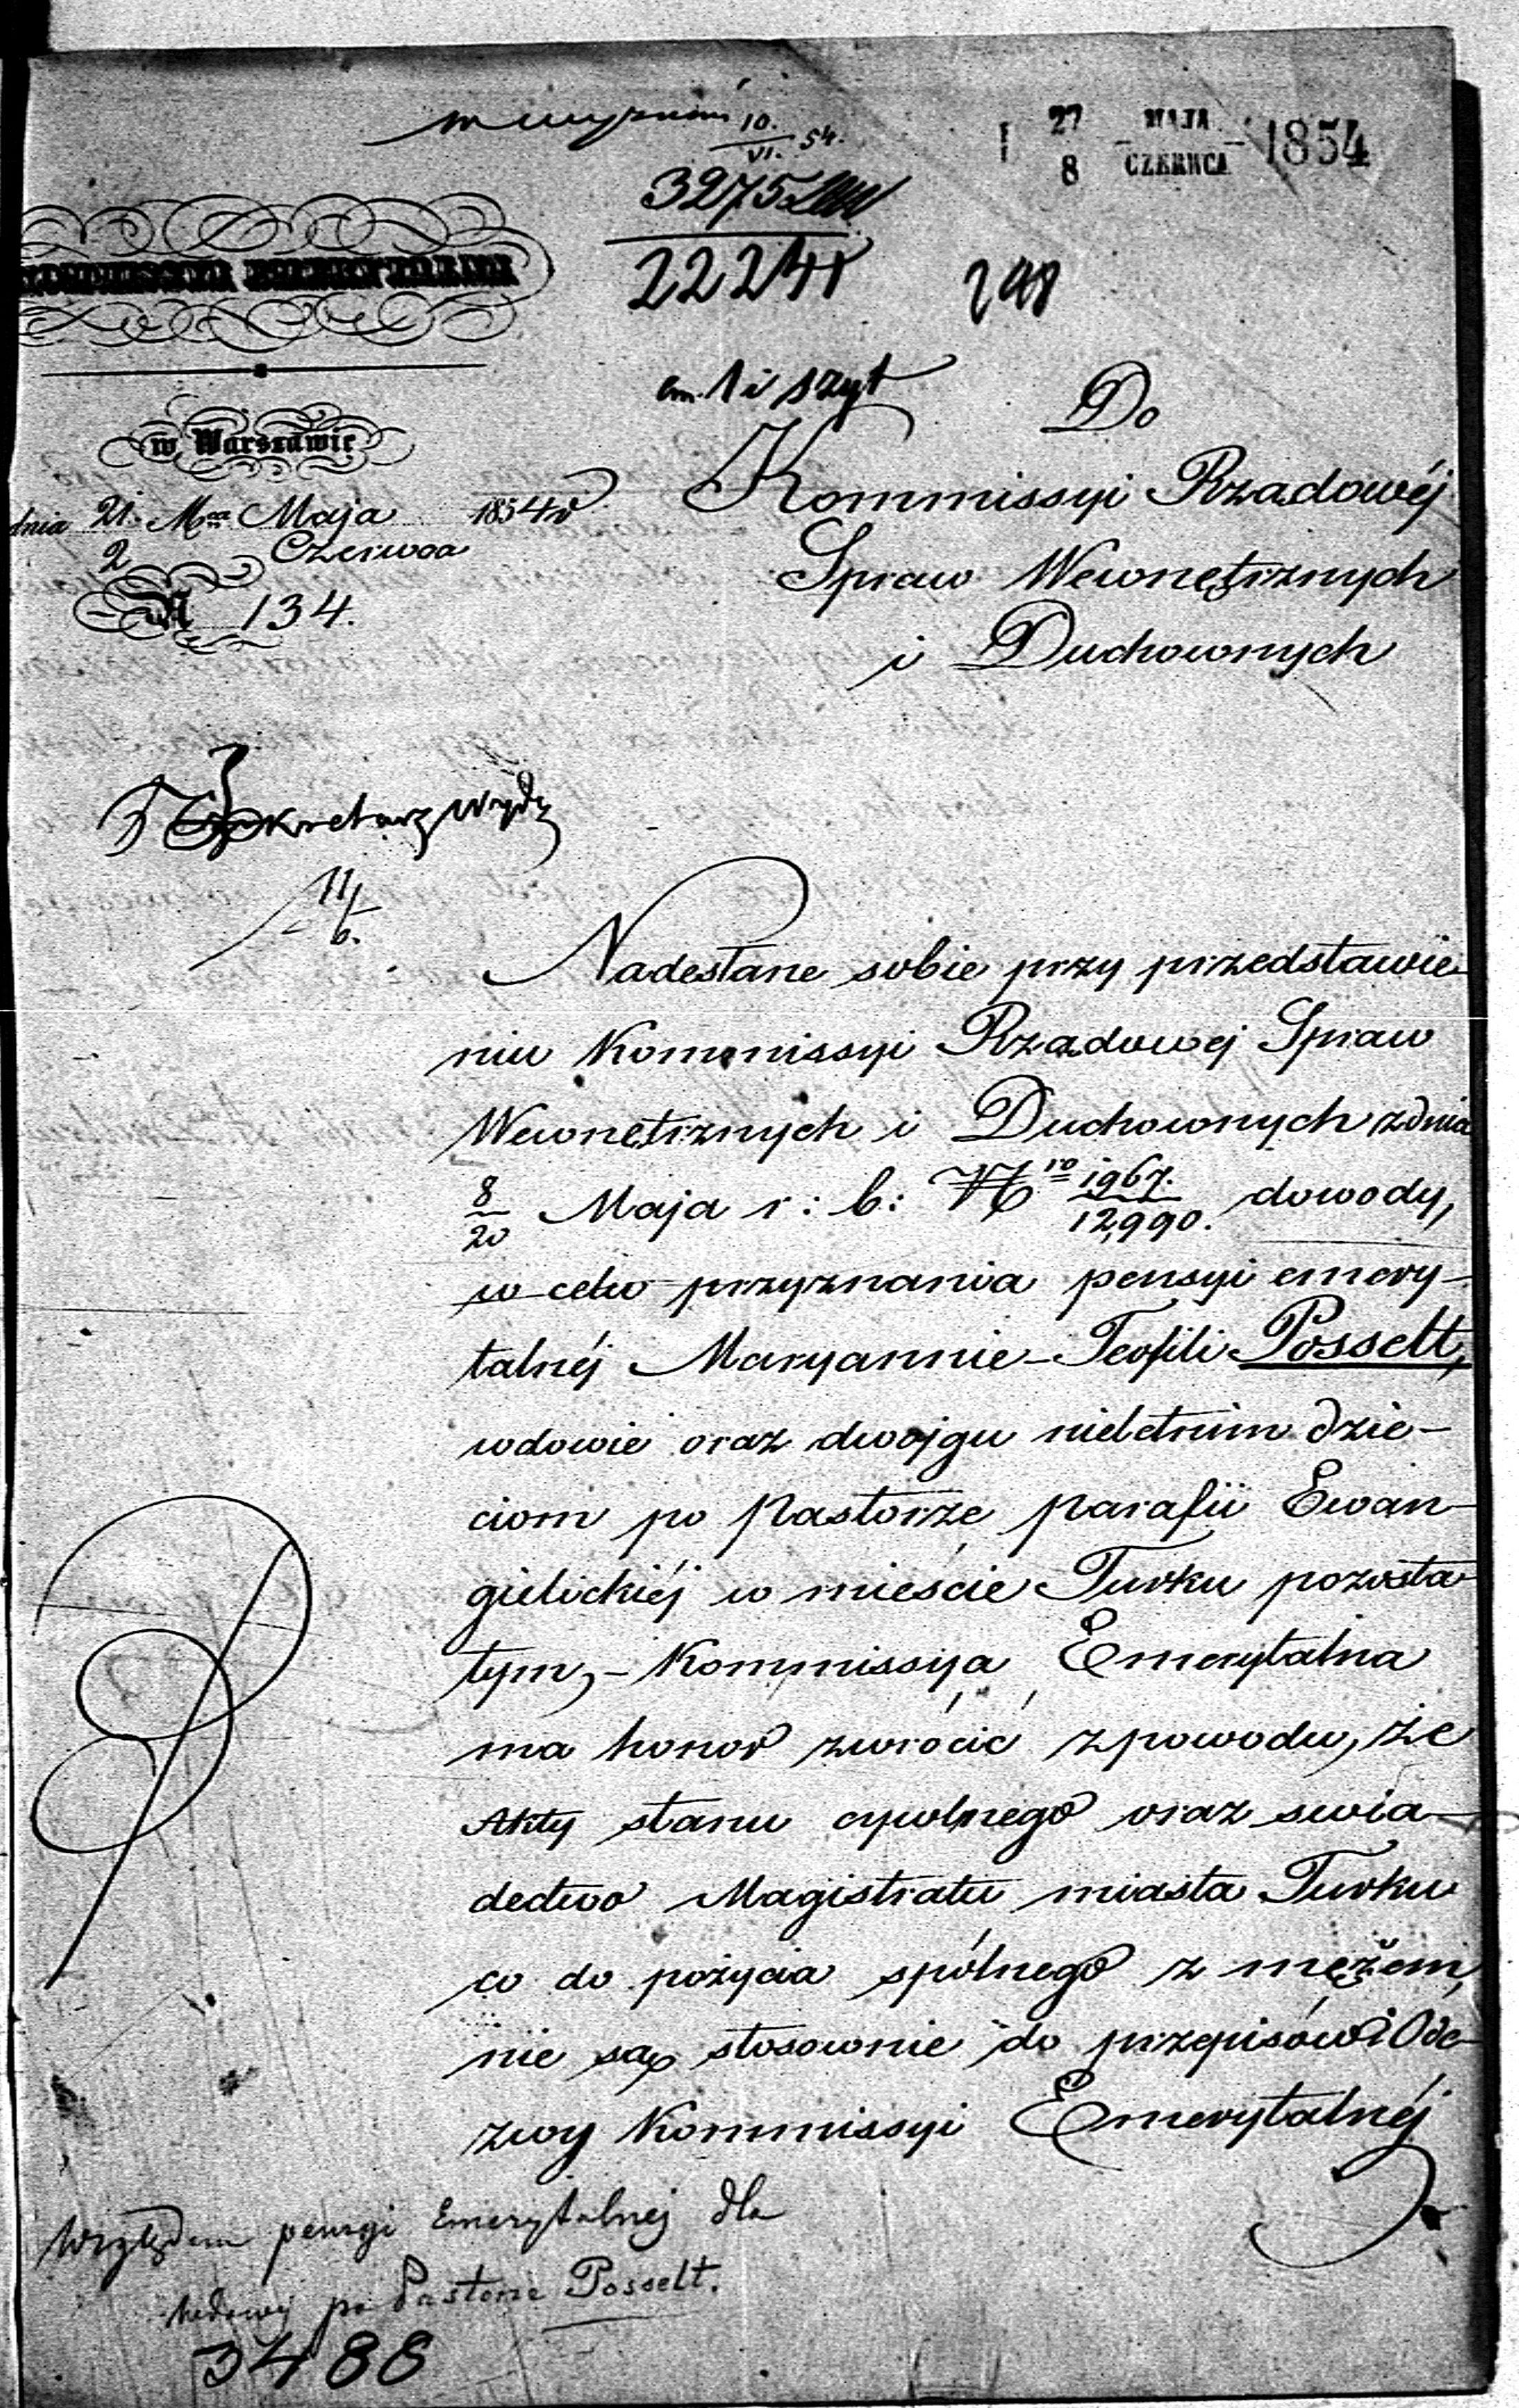 10. / VI. 54.
27 MAJA / 8 CZERWCA 1854
3275
22241
248
KOMMISSYA EMERYTALNA
1 i szyt
w Warszawie
dnia 21. Mca Maja 1854 r
2 Czerwca
N 134.
Do
Kommissyi Rządowéj
Spraw Wewnętrznych
i Duchownych
Sekretarz Wydz
11/6.
Nadesłane sobie przy przedstawie-
niu Kommissyi Rządowej Spraw
Wewnętrznych i Duchownych z dnia
8/20 Maja r: b: Nro 1967./12,990. dowody,
w celu przyznania pensyi emery-
talnéj Maryannie-Teofili Posselt,
wdowie oraz dwojgu nieletnim dzie-
ciom po Pastorze parafii Ewan-
gielickiéj w mieście Turku pozosta-
łym, – Kommissyja Emerytalna
ma honor zwrócić z powodu, że
Akty stanu cywilnego oraz swia-
dectwo Magistratu miasta Turku
co do pożycia spólnego z mężem,
nie są stosownie do przepisów i Ode-
zwy Kommissyi Emerytalnéj
Względem pensyi Emerytalnej dla
wdowy po Pastorze Posselt.
3488